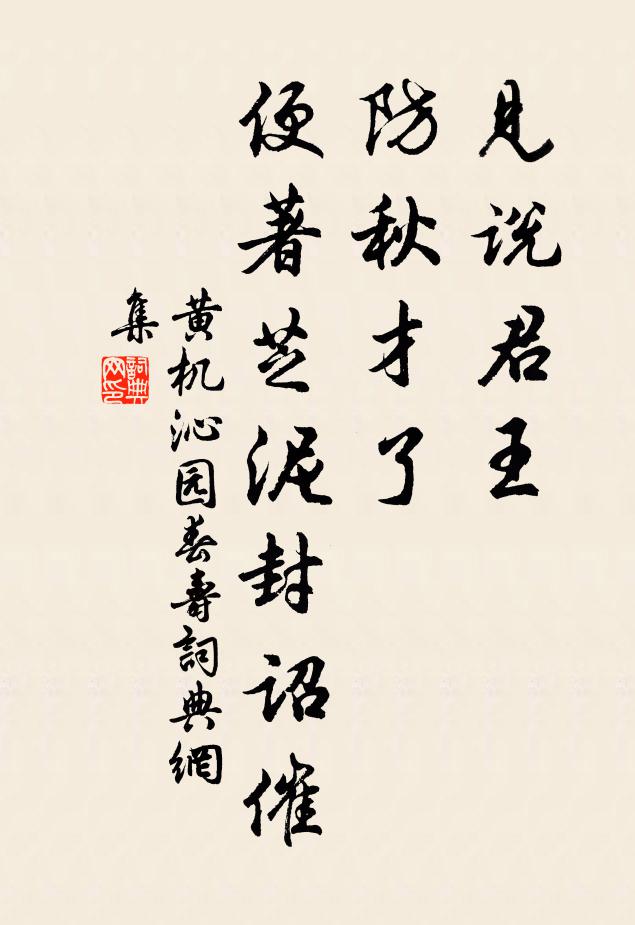 见说君王
防秋才了
便著芝泥封诏催
黄机沁园春寿詞典網
集
詞典
网印